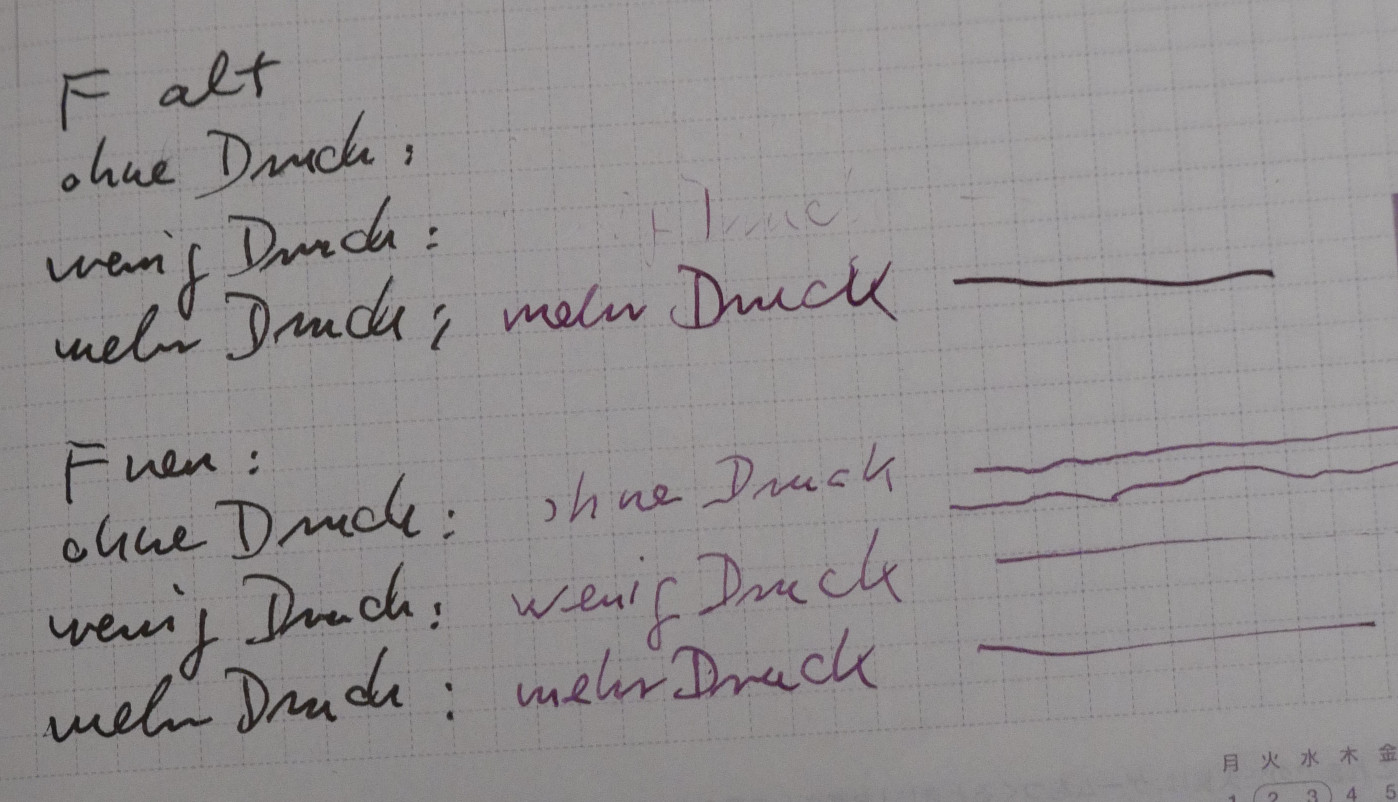 F alt
ohne Druck:
wenig Druck:
mehr Druck: mehr Druck
F neu:
ohne Druck: ohne Druck
wenig Druck: wenig Druck
mehr Druck: mehr Druck
月 火 水 木 金
1 2 3 4 5